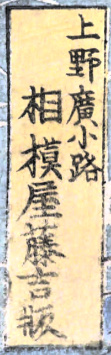 上野廣小路
相模屋藤吉版